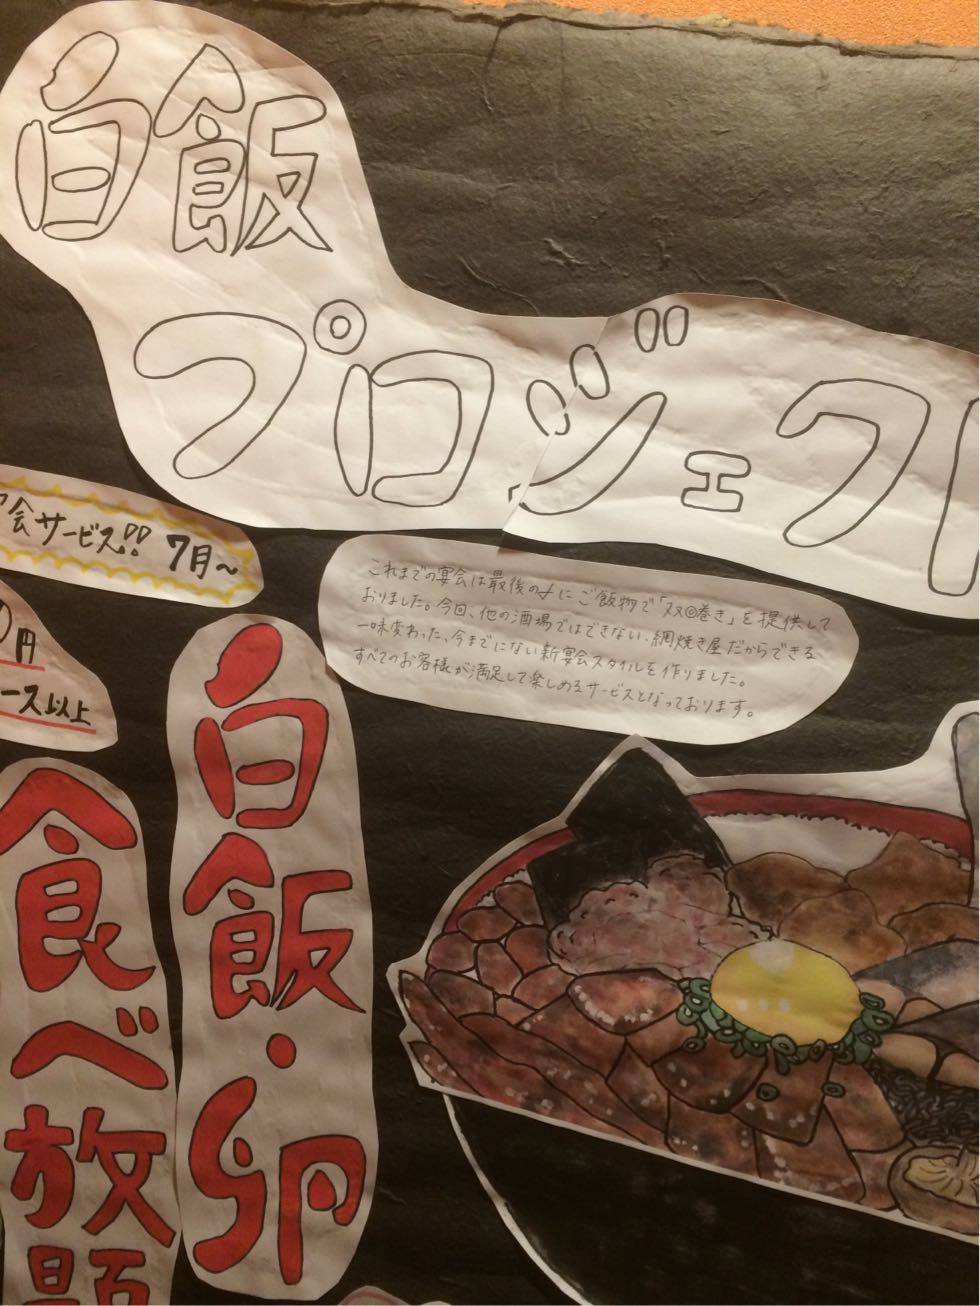 白飯
プロジェクト
会サービス!! 7月～
これまでの宴会は最後の〆にご飯物で「ス◎巻き」を提供して
おりました。今回、他の酒場ではできない、網焼き屋だからできる
一味変わった、今までにない新宴会スタイルを作りました。
すべてのお客様が満足して楽しめるサービスとなっております。
0円
ース以上
白飯・卵
食べ放題